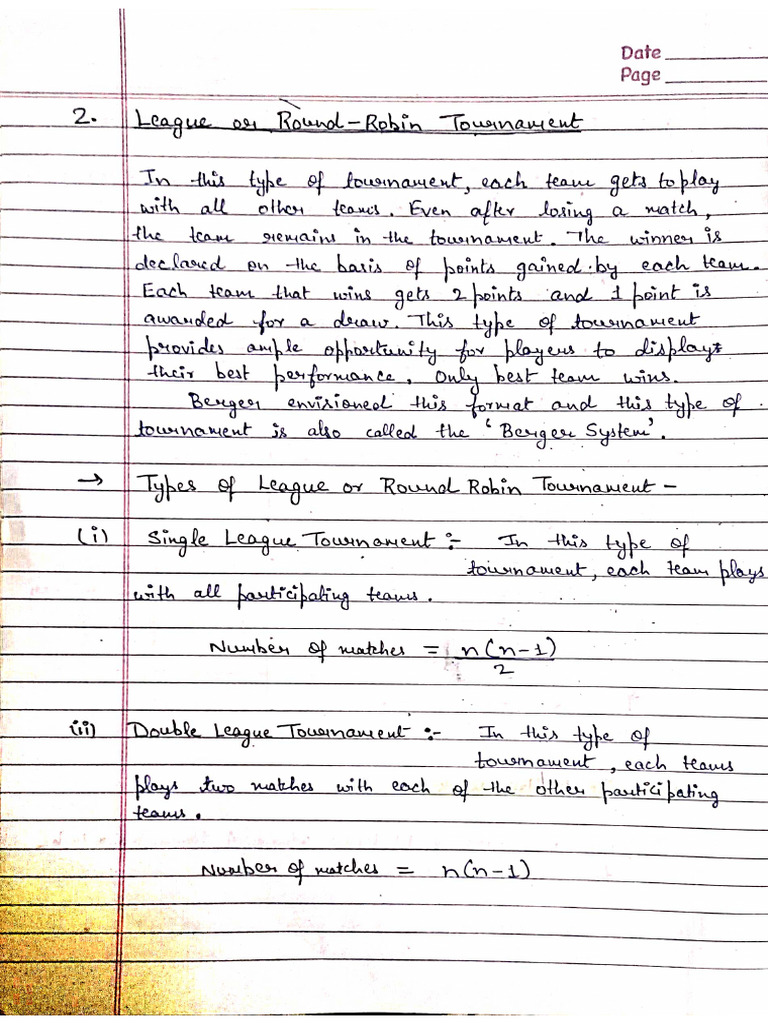 Date
Page
2. League or Round-Robin Tournament
In this type of tournament, each team gets to play
with all other teams. Even after losing a match,
the team remains in the tournament. The winner is
declared on the basis of points gained by each team.
Each team that wins gets 2 points and 1 point is
awarded for a draw. This type of tournament
provides ample opportunity for players to display
their best performance. Only best team wins.
Berger envisioned this format and this type of
tournament is also called the 'Berger System'.
→ Types of League or Round Robin Tournament -
(i) Single League Tournament :- In this type of
tournament, each team plays
with all participating teams.
Number of matches = n(n-1)
2
(ii) Double League Tournament :- In this type of
tournament, each teams
plays two matches with each of the other participating
teams.
Number of matches = n(n-1)